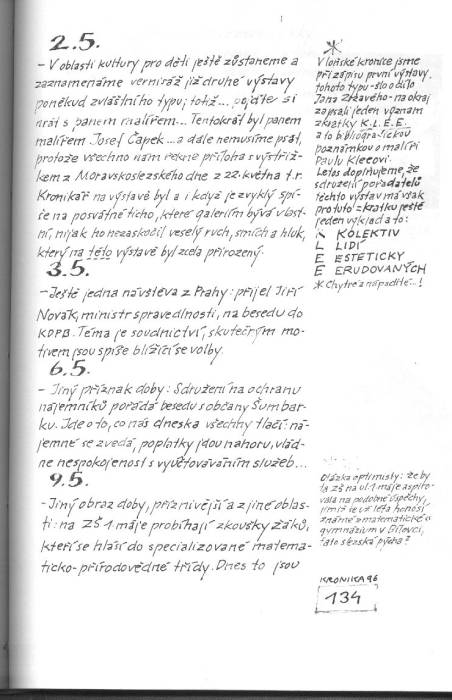 2.5.
- V oblasti kultury pro děti ještě zůstaneme a
zaznamenáme vernisáž již druhé výstavy
poněkud zvláštního typu; totiž... pojďte si
hrát s panem malířem... Tentokrát byl panem
malířem Josef Čapek... a dále nemusíme psát,
protože všechno nám řekne příloha s výstřiž-
kem z Moravskoslezského dne z 22. května t.r.
Kronikář na výstavě byl a i když je zvyklý spí-
še na posvátné ticho, které galeriím bývá vlast-
ní, nijak ho nezaskočil veselý ruch, smích a hluk,
který na této výstavě byl zcela přirozený.
3.5.
- Ještě jedna návštěva z Prahy: přijel Jiří
Novák, ministr spravedlnosti, na besedu do
KDPB. Téma je soudnictví, skutečným mo-
tivem jsou spíše blížící se volby.
6.5.
- Jiný příznak doby: Sdružení na ochranu
nájemníků pořádá besedu s občany Šumbar-
ku. Jde o to, co nás dneska všechny tlačí: ná-
jemné se zvedá, poplatky jdou nahoru, vlád-
ne nespokojenost s vyúčtováváním služeb...
9.5.
- Jiný obraz doby, příznivější a z jiné oblas-
ti: na ZŠ 1. máje probíhají zkoušky žáků,
kteří se hlásí do specializované matema-
ticko-přírodovědné třídy. Dnes to jsou
V loňské kronice jsme
při zápisu první výstavy
tohoto typu - šlo o dílo
Jana Zrzavého - na okraj
zapsali jeden význam
zkratky K.L.E.E.
a to bibliografickou
poznámkou o malíři
Paulu Kleeovi.
Letos doplňujeme, že
sdružení pořadatelů
těchto výstav má však
pro tuto zkratku ještě
jeden výklad a to:
K KOLEKTIV
L LIDÍ
E ESTETICKY
E ERUDOVANÝCH
* Chytré a nápadité..!
Otázka optimisty: že by
ta ZŠ na ul. 1. máje aspiro-
vala na podobné úspěchy,
jimiž se už léta honosí
známé "matematické"
gymnázium v Bílovci,
tato slezská pýcha?
KRONIKA 96
134